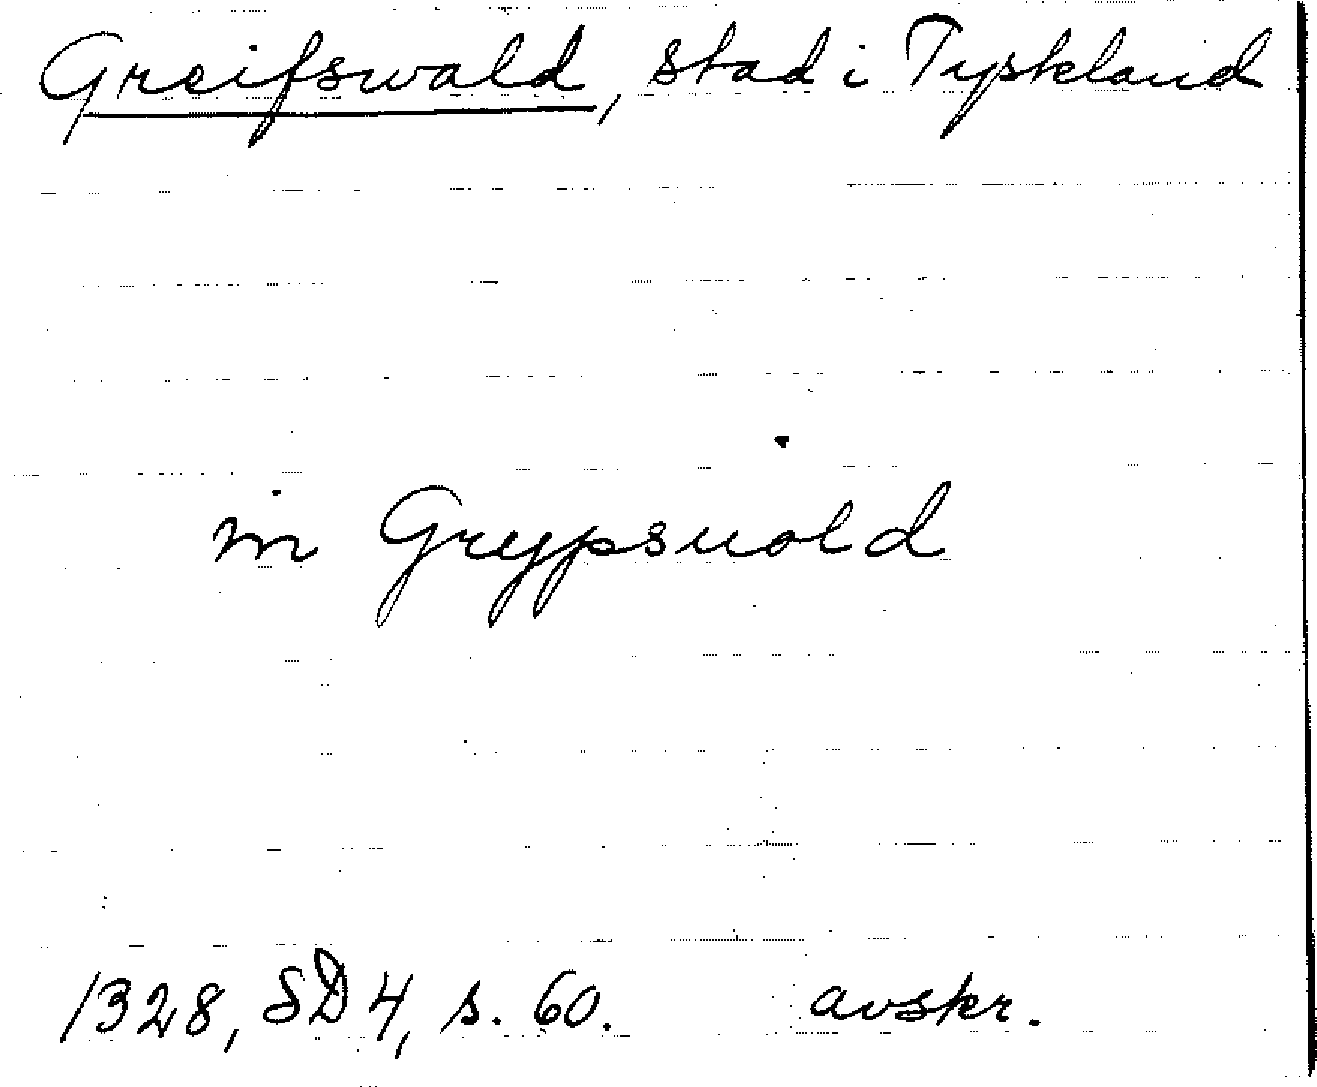 Greifswald, stad i Tyskland
in Greypsuold
1328, SD 4, s. 60. avskr.